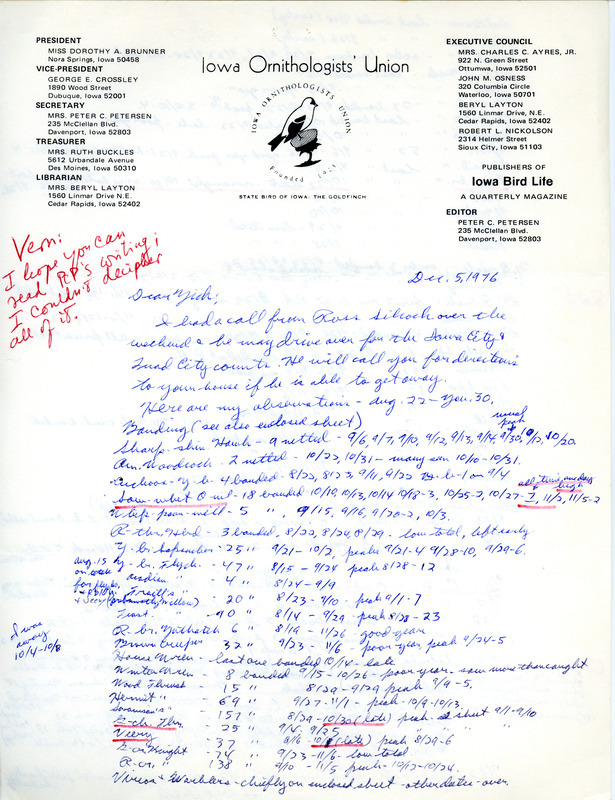 PRESIDENT
MISS DOROTHY A. BRUNNER
Nora Springs, Iowa 50458
VICE-PRESIDENT
GEORGE E. CROSSLEY
1890 Wood Street
Dubuque, Iowa 52001
SECRETARY
MRS. PETER C. PETERSEN
235 McClellan Blvd.
Davenport, Iowa 52803
TREASURER
MRS. RUTH BUCKLES
5612 Urbandale Avenue
Des Moines, Iowa 50310
LIBRARIAN
MRS. BERYL LAYTON
1560 Linmar Drive N.E.
Cedar Rapids, Iowa 52402
Iowa Ornithologists' Union
IOWA ORNITHOLOGISTS UNION
Founded 1923
STATE BIRD OF IOWA: THE GOLDFINCH
EXECUTIVE COUNCIL
MRS. CHARLES C. AYRES, JR.
922 N. Green Street
Ottumwa, Iowa 52501
JOHN M. OSNESS
320 Columbia Circle
Waterloo, Iowa 50701
BERYL LAYTON
1560 Linmar Drive, N.E.
Cedar Rapids, Iowa 52402
ROBERT L. NICKOLSON
2314 Helmer Street
Sioux City, Iowa 51103
PUBLISHERS OF
Iowa Bird Life
A QUARTERLY MAGAZINE
EDITOR
PETER C. PETERSEN
235 McClellan Blvd.
Davenport, Iowa 52803
Vern:
I hope you can
read P.P's writing;
I couldn't decipher
all of it.
Dec. 5, 1976
Dear Nick,
I had a call from Ross Silcock over the
weekend & he may drive over for the Iowa City &
Quad City counts. He will call you for directions
to your house if he is able to get away.
Here are my observations - Aug. 22 - Nov. 30.
Banding (see also enclosed sheet)
usual peak
Sharp-shin Hawk - 9 netted - 9/6, 9/7, 9/10, 9/12, 9/13, 9/14, 9/30, 10/12, 10/20.
Am. Woodcock - 2 netted - 10/22, 10/31 - many seen 10/10 - 10/31.
Cuckoos - Y-b 4 banded - 8/22, 8/23, 9/11, 9/22 B-b-1 on 9/4
all time one day high
Saw-whet Owl - 18 banded 10/19, 10/13, 10/14 10/18-3, 10/25-2, 10/27-7, 11/2, 11/5-2
Whip-poor-will - 5 ", 9/15, 9/16, 9/20-2, 10/3.
R-thr. Hbd - 3 banded, 8/22, 8/24, 8/29 - low total, left early
Y-br. Sapsucker - 25 " 9/21 - 10/2, peaks 9/21-4 9/28-10, 9/29-6.
Y-br. Flych. - 47 " 8/15 - 9/24 peak 8/28 - 12
Acadian " - 4 " 8/24 - 9/9
Traill's " - 20 " 8/23 - 9/10 - peak 9/1 - 7
Least " - 90 " 8/14 - 9/29 - peak 8/28 - 23
R-br. Nuthatch 6 " 8/19 - 11/26 good year
Brown Creeper - 32 " 9/23 - 11/6 - poor year peak 9/24-5
House Wren - last one banded 10/14 - late
Winter Wren - 8 banded 9/15 - 10/26 - poor year - saw more than caught
Wood Thrush - 15 " 8/29 - 9/29 peak 9/9 - 5.
Hermit " - 69 " 9/27 - 11/1 - peak 10/9 - 10/13.
Swainson's " - 157 " 8/29 - 10/30 (late) peak - sheet 9/1 - 9/10
G-ch. Thr. - 25 " 9/4 - 9/25
Veery - 37 " (late) peak 8/29-6
G-cr. Kinglet - 24 " 9/23 - 11/6 - low total
R-cr. " - 138 " 9/10 - 11/5 peak - 10/12 - 10/24.
Vireos & Warblers - chiefly on enclosed sheet - other dates - over.
Aug. 15
on
for flych.
I was
away
10/4 - 10/8